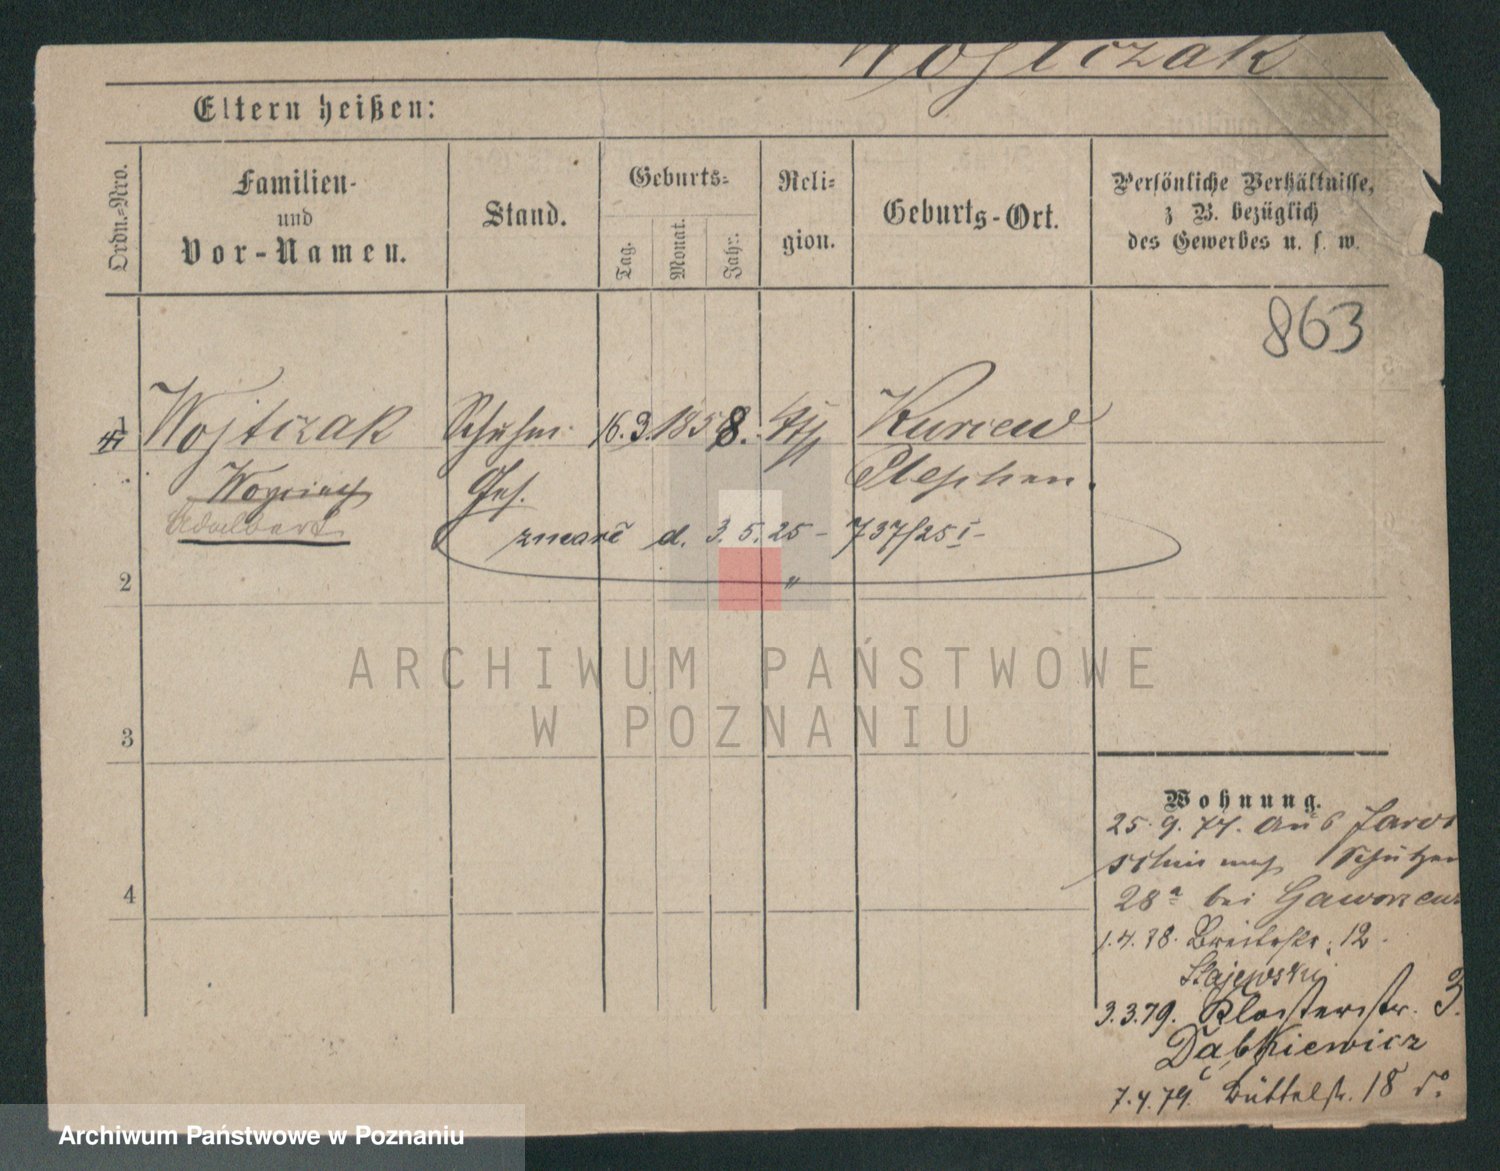 Wojtczak
Eltern heißen:
Ordn.-Nro.
Familien-
und
Vor-Namen.
Stand.
Geburts-
Tag.
Monat.
Jahr.
Reli-
gion.
Geburts-Ort.
Persönliche Verhältnisse,
z B. bezüglich
des Gewerbes u. s. w.
863
1 Wojtczak Schuhm. 16. 3. 1858. kth Kuriew
Woyciech Ges. Stephan.
Adalbert
zmarł d. 3. 5. 25 - 737/25 I -
2
3
4
ARCHIWUM PAŃSTWOWE
W POZNANIU
Wohnung.
25. 9. 77. aus
nach Schützen
28a bei
1. 4. 78. Breitestr. 12.
Stajewski
3. 3. 79. Klosterstr. 3.
Dąbkiewicz
7. 4. 79. Büttelstr. 18 do
Archiwum Państwowe w Poznaniu